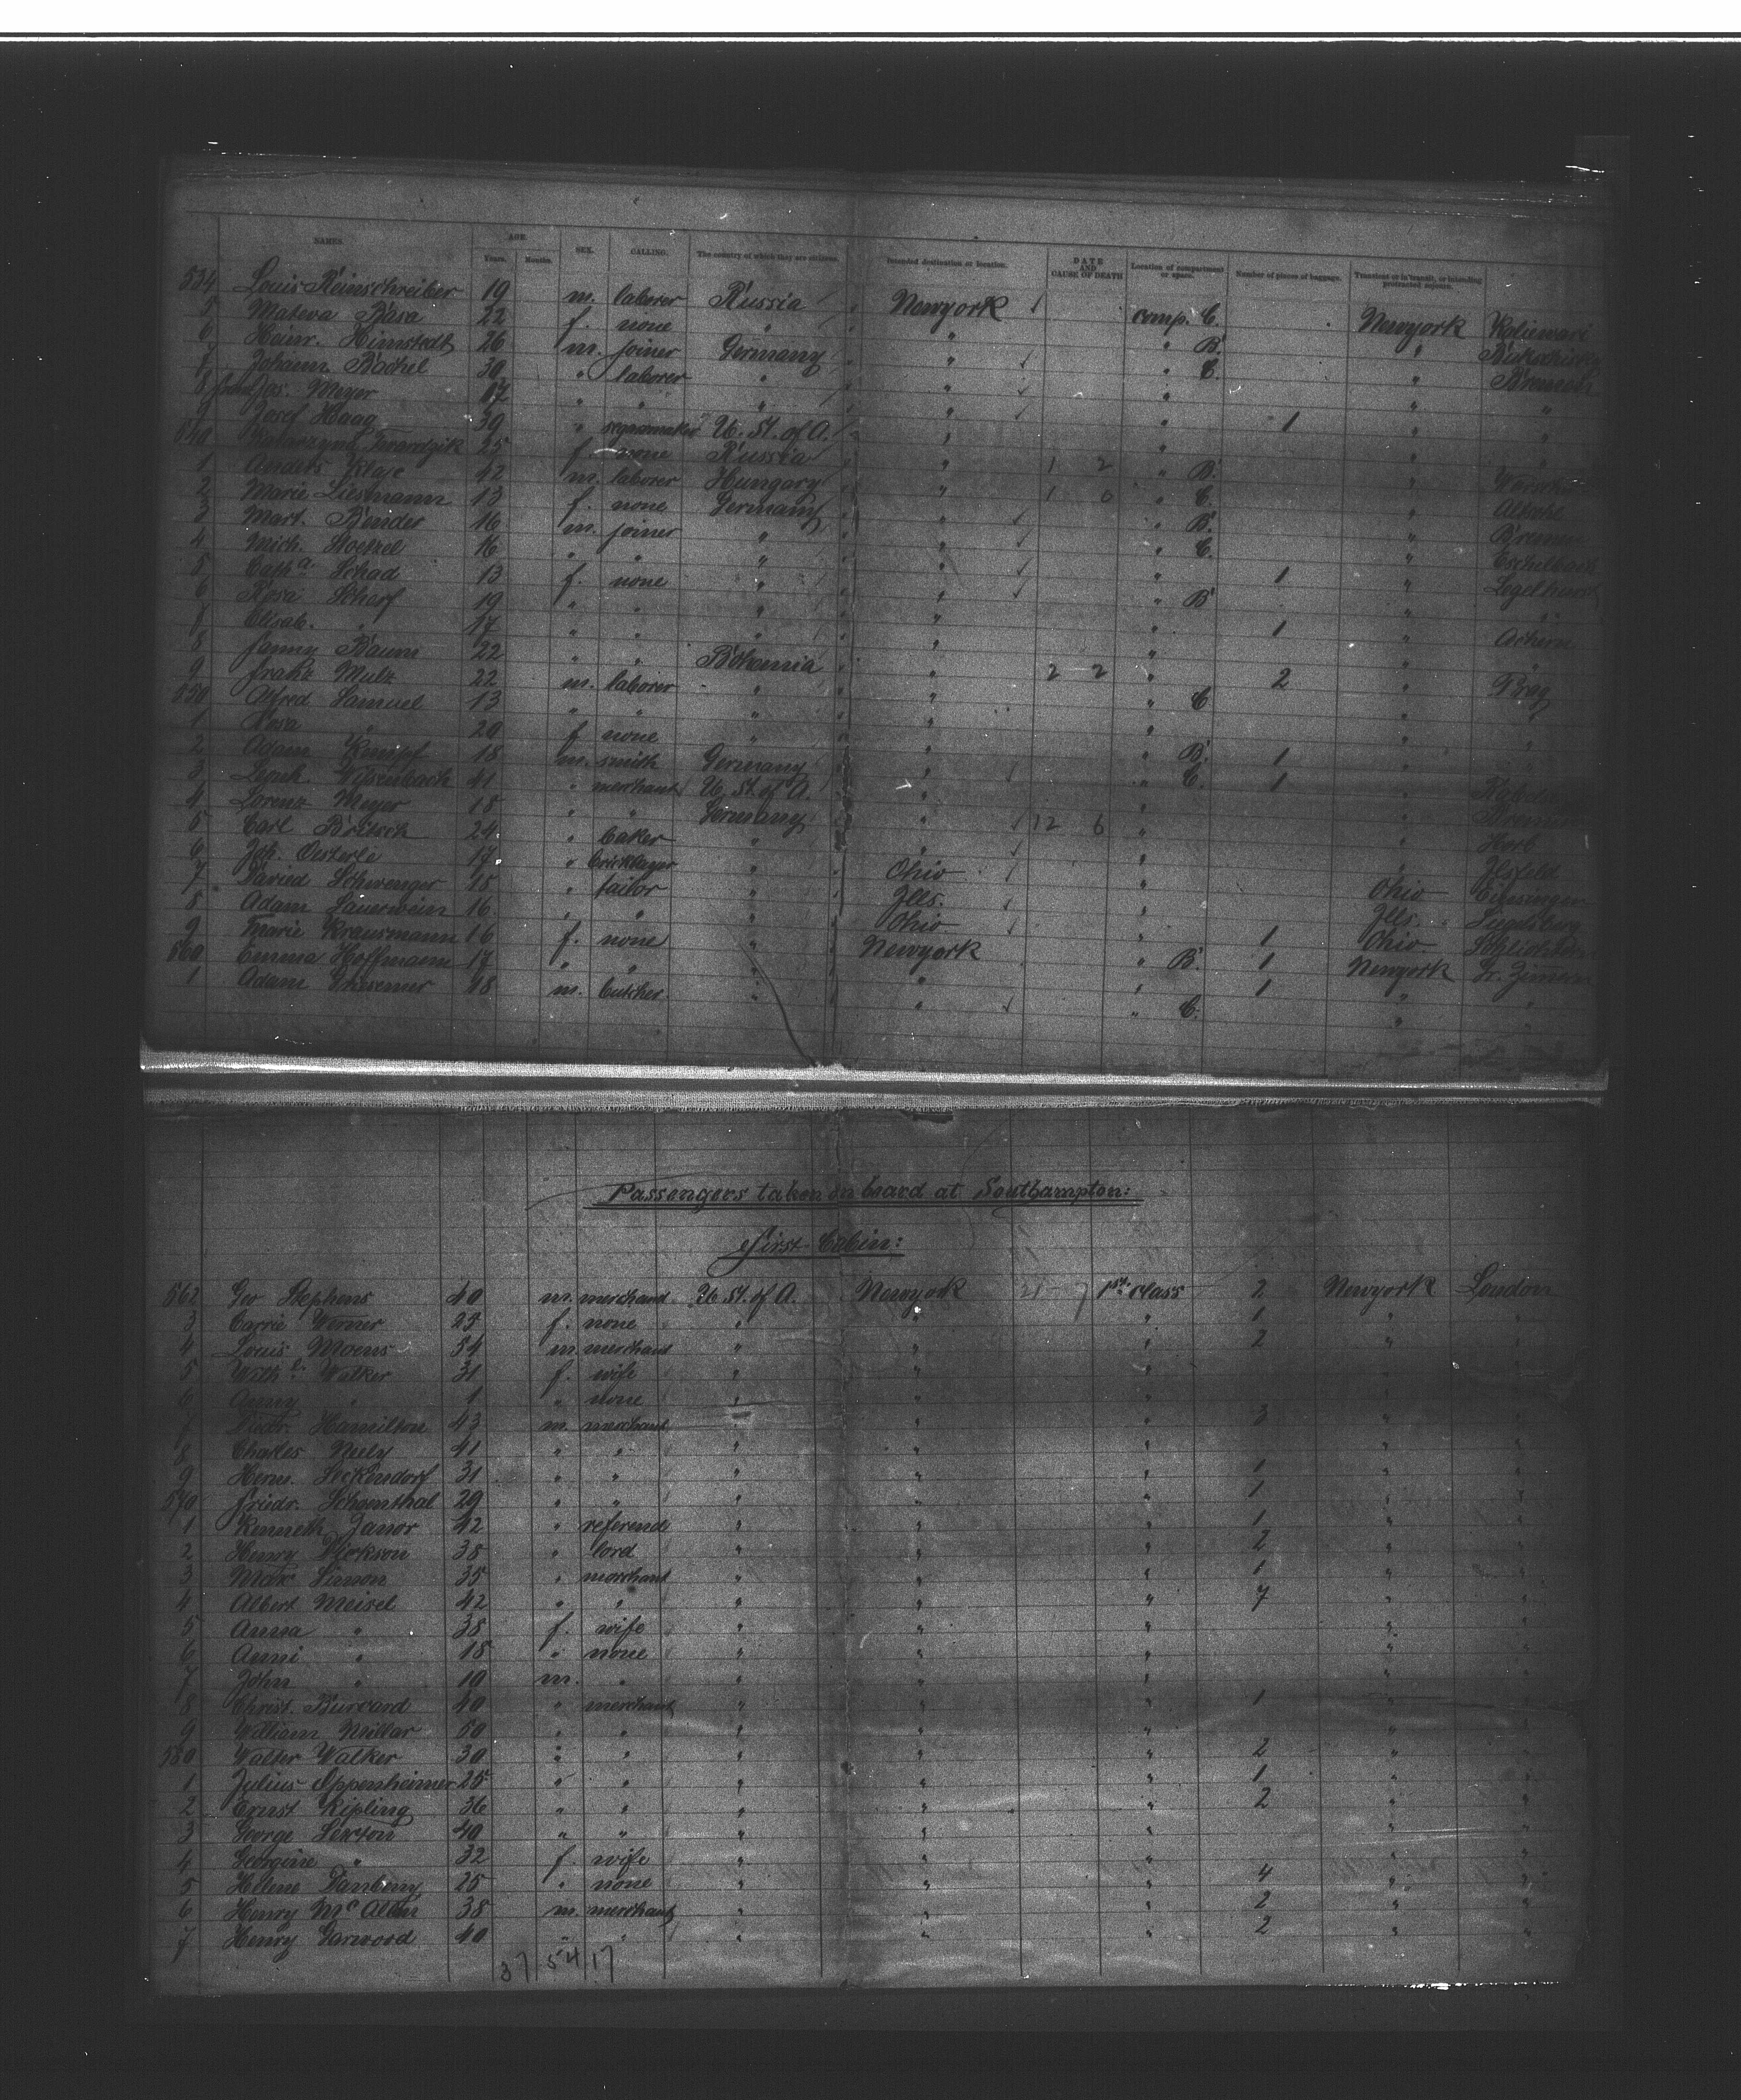 NAMES. AGE. Years. Months. SEX. CALLING. The country of which they are citizens. Intended destination or location. DATE AND CAUSE OF DEATH Location of compartment or space. Number of pieces of baggage. Transient or in transit, or intending protracted sojourn.
534 Louis Reinschreiber 19 m. laborer Russia Newyork comp. C. Newyork
5 Mateva Basa 22 f. none " " " B. "
6 Heinr. Himstedt 26 m. joiner Germany " " C. " Bremen
7 Johann Bachel 30 " laborer " " " " "
8 Jos. Meyer 17 " " " " " 1 " "
9 Josef Haag 39 " U. St. of A. " " " "
540 Katarzyna Twardzik 25 f. none Russia " 1 2 " B. "
1 Anders Klaje 42 m. laborer Hungary " 1 0 " C. "
2 Marie Liesmann 13 f. none Germany " " B. " Bremen
3 Mart. Bender 16 m. joiner " " " C. " Eschelbach
4 Mich. Stoetzel 16 " " " " " 1 " Legelhurst
5 Catha. Schad 13 f. none " " " B " "
6 Rosa Scharf 19 " " " " " 1 " Achern
7 Elisab. " 17 " " " " " " "
8 Fanny Baum 22 " " Bohemia " 2 2 " 2 " Prag
9 Franz Mulz 22 m. laborer " " " C " "
550 Alfred Samuel 13 " " " " " "
1 Rosa " 20 f none " " " B. 1 " "
2 Adam Kempf 18 m. smith Germany " " C. 1 "
3 Leonh. Wisenbach 41 " merchant U. St. of A. " " " Bremen
4 Lorenz Meyer 18 " " Germany " 12 6 " " Horb
5 Carl Britsch 24 " baker " " " " Ilsfeld
6 Joh. Oesterle 17 " bricklayer " Ohio " Ohio
7 David Schwenger 18 " tailor " Ills. " Ills.
8 Adam Lauerwein 16 " " " Ohio " 1 Ohio
9 Marie Krausmann 16 f. none " Newyork " B. 1 Newyork
560 Emma Hoffmann 17 " " " " " 1 " "
1 Adam 18 m. butcher " " " C. " "
Passengers taken on board at Southampton:
First Cabin:
562 Geo Stephens 40 m. merchand U. St. of A. Newyork 21 - 7 1st class 2 Newyork London
3 Carrie Werner 25 f. none " " " 1 " "
4 Louis Moens 34 m. merchant " " " 2 " "
5 Walker 31 f. wife " " "
6 Anny " 1 " none " " "
7 Hamilton 43 m. merchant " " " 3 " "
8 Charles Neely 41 " " " " " " "
9 Herm. Seckendorf 31 " " " " " 1 " "
570 Friedr. Schoenthal 29 " " " " " 1 " "
1 Kenneth Janor 42 " referend " " " 1 " "
2 Henry Dickson 38 " lord " " " 2 " "
3 Max Simon 35 " merchant " " " 1 " "
4 Albert Meisel 42 " " " " " 7 " "
5 Anna " 38 f. wife " " " " "
6 Aenni " 18 " none " " " " "
7 John " 10 m. " " " " " "
8 Christ. Burcard 40 " merchant " " " 1 " "
9 William Millar 50 " " " " " " "
580 Walter Walker 30 " " " " " 2 " "
1 Julius Oppenheimer 25 " " " " " 1 " "
2 Ernst Kipling 36 " " " " " 2 " "
3 George Sexton 40 " " " " " " "
4 Georgine " 32 f. wife " " " " "
5 Helene 25 " none " " " 4 " "
6 Henry 38 m. merchant " " " 2 " "
7 Henry Garwood 40 " " " " " 2 " "
37 54 17